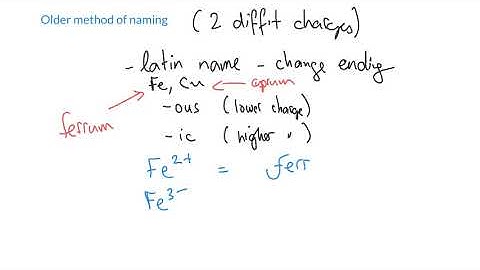 Older method of naming
(2 diffit charges)
- latin name - change endig
Fe, Cu ← cuprum
ferrum
- ous (lower charge)
- ic (higher ")
Fe²⁺ = ferr
Fe³⁻